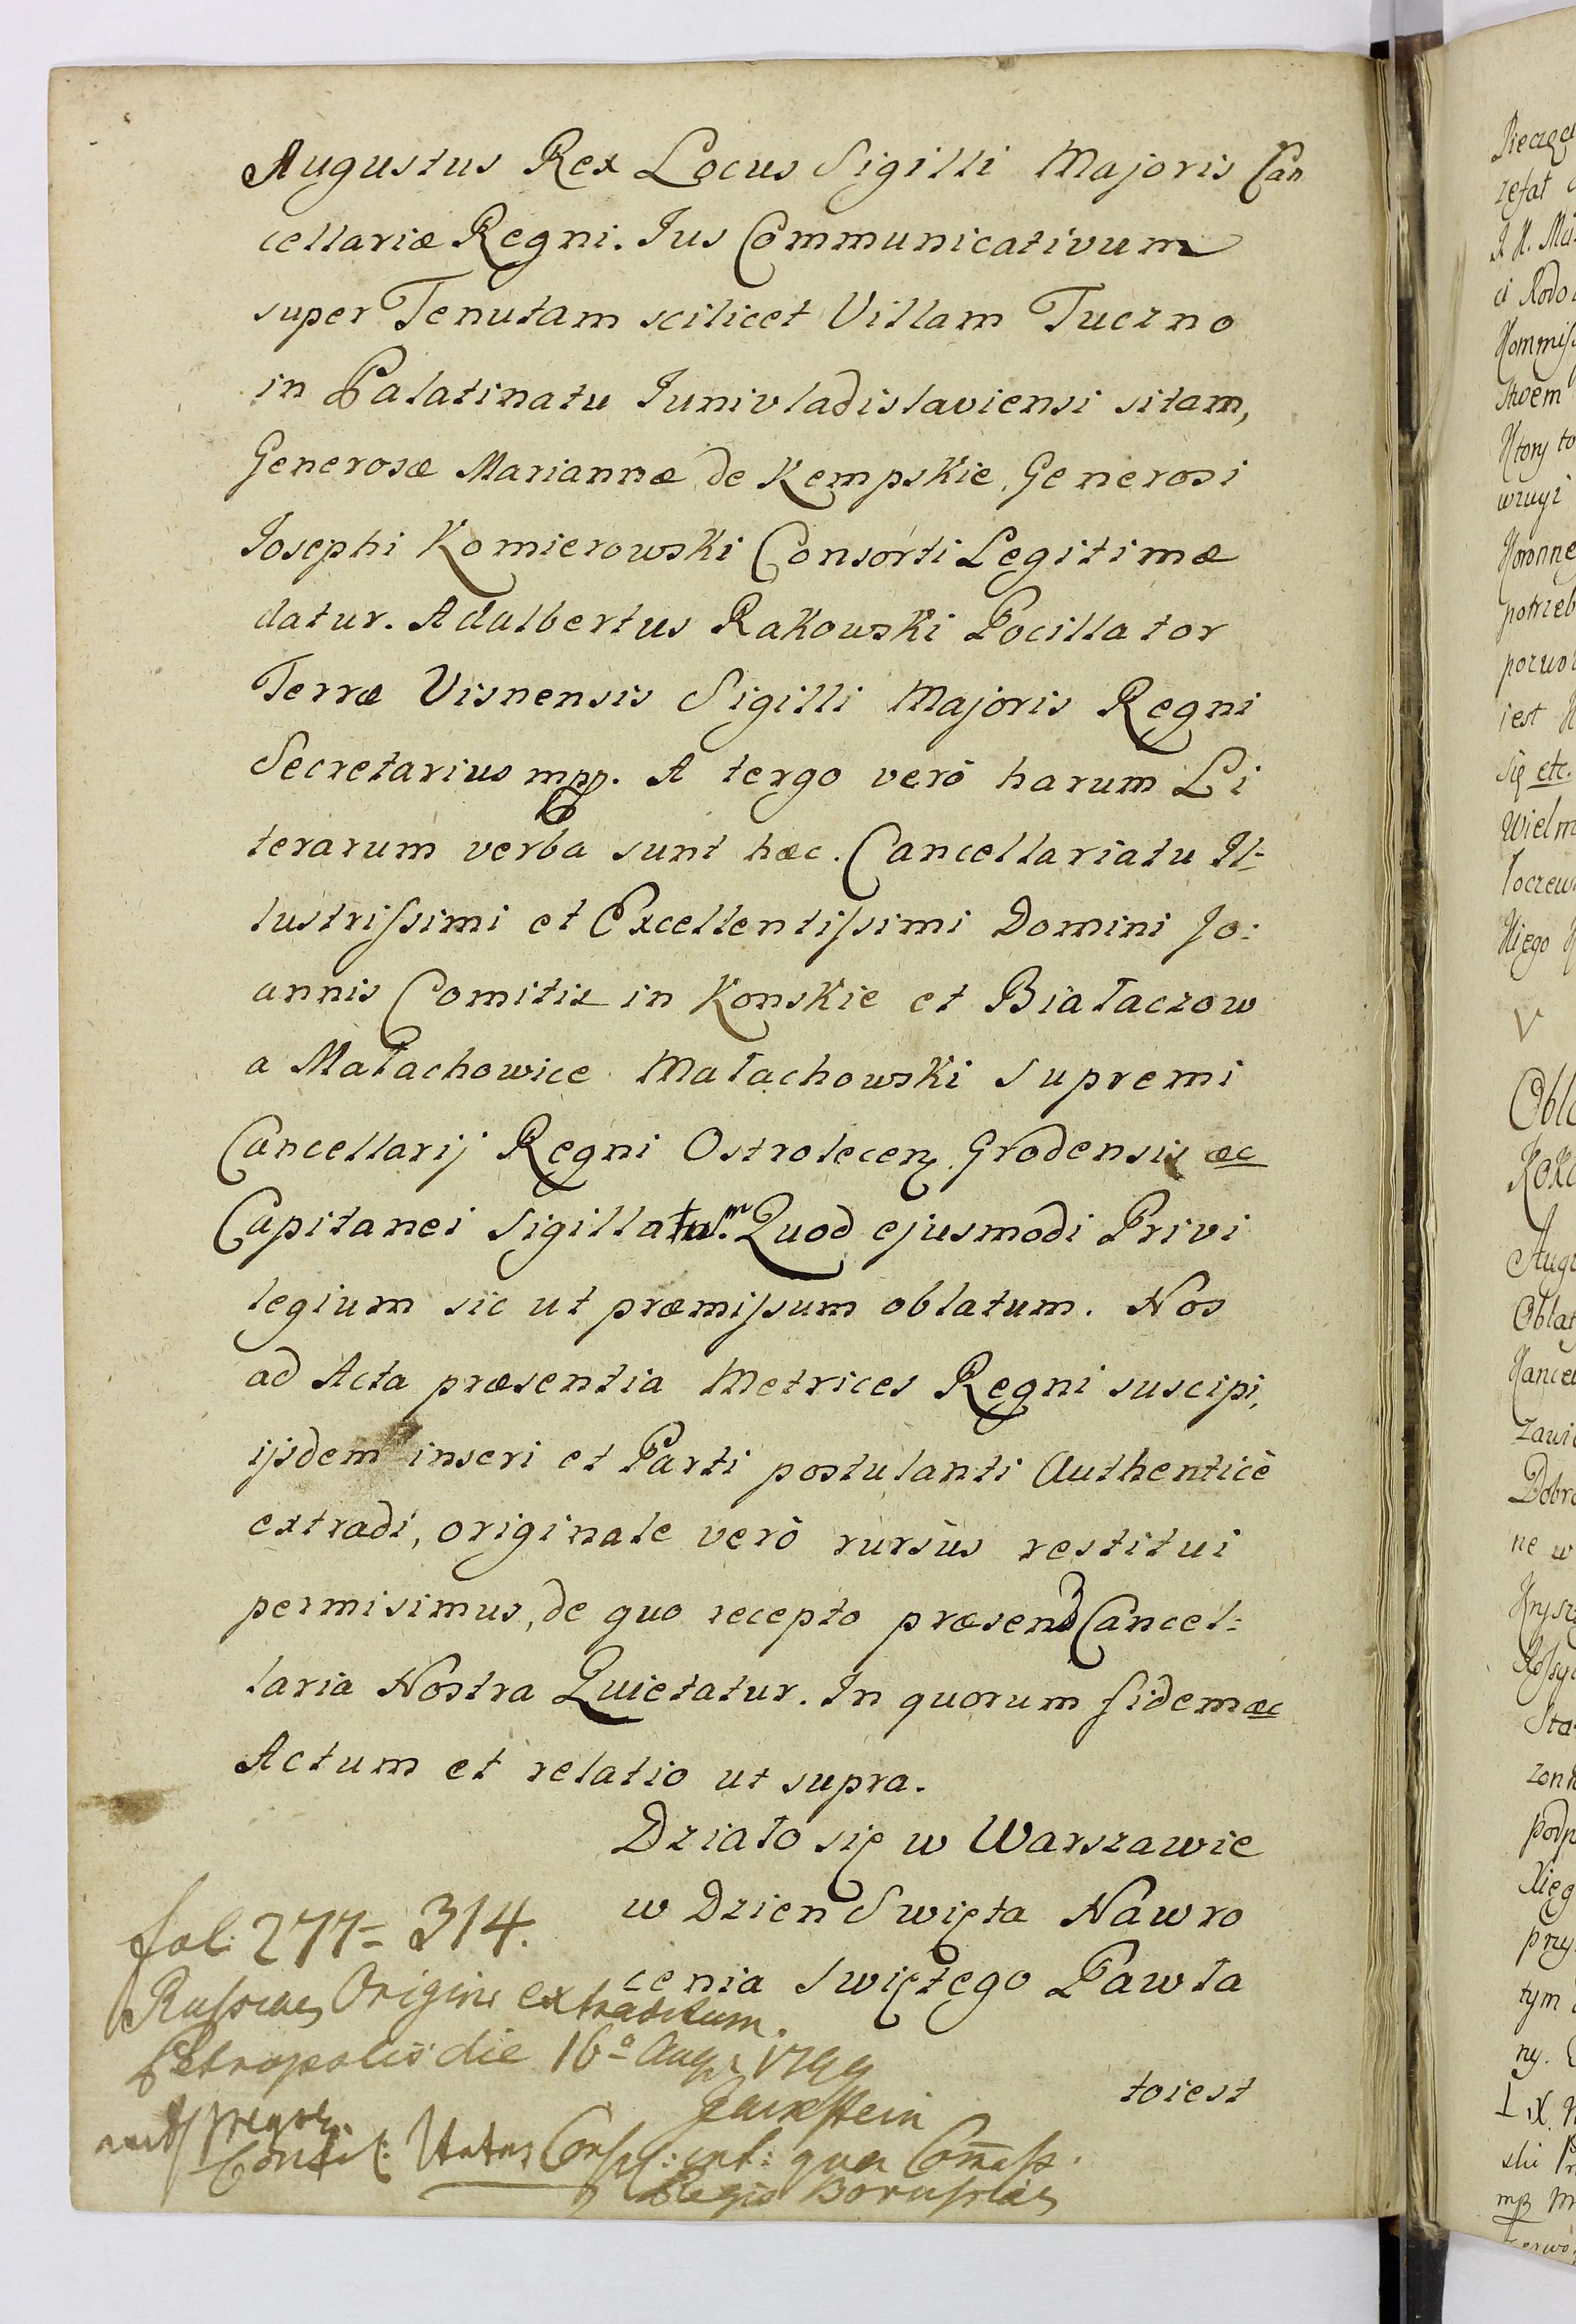 Augustus Rex Locus Sigilli Majoris Can
cellariæ Regni. Ius Communicativum
super Tenutam scilicet Villam Tuczno
in Palatinatu Junivladislaviensi sitam,
Generosæ Mariannæ de Kempskie, Generosi
Josephi Komierowski Consorti Legitimæ
datur. Adalbertus Rakowski Pocillator
Terræ Visnensis Sigilli Majoris Regni
Secretarius mpp. A tergo verò harum Li
terarum verba sunt hæc. Cancellariatu Il-
lustrissimi et Excellentissimi Domini Jo:
annis Comitis in Konskie et Białaczow
a Małachowice Małachowski Supremi
Cancellarij Regni Ostrolecen Grodensis æc
Capitanei Sigillatum. Quod ejusmodi Privi
legium sic ut præmissum oblatum. Nos
ad Acta præsentia Metrices Regni suscipi,
ijsdem inseri et Parti postulanti Authenticè
extradi, originale verò rursùs restitui
permisimus, de quo recepto præsens Cancel:
laria Nostra Quietatur. In quorum fidem æc
Actum et relatio ut supra.
Działo się w Warszawie
w Dzien Swięta Nawro
cenia Swiętego Pawła
toiest
fol: 277 = 314.
Origine extraditum.
Petropolis die 16º Aug. 1799
Consil: Cons: int: qua Com̄iss.
Regis Borussiae
Pieczęc
zefat
Kommiss
Ktory to
wzuyi
Koronney
potrzeb
pozwor
iest
się etc.
Wielm
Toczew
Kiego
V
Obla
Koko
Augu
Oblat
Kancel
zawi
Dobra
ne w
Sta
zon
podp
Xieg
przy
tym
ny.
mp